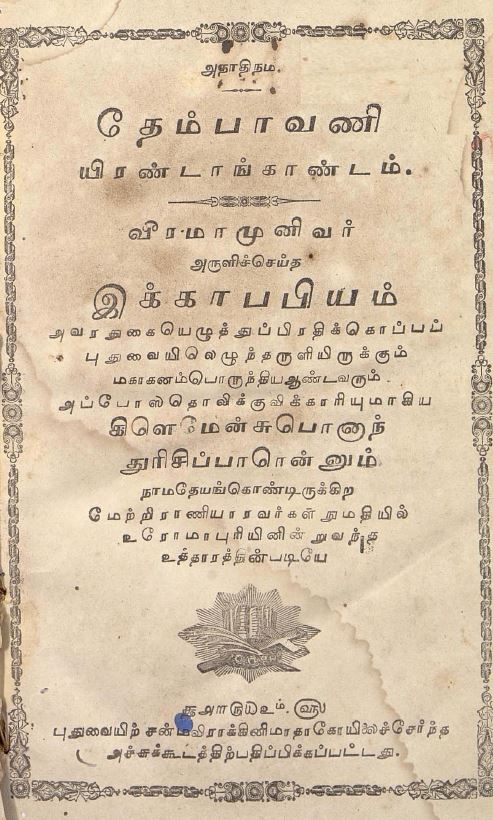 அநாதிநம.
தேம்பாவணி
யிரண்டாங்காண்டம்.
வீரமாமுனிவர்
அருளிச்செய்த
இக்காபபியம்
அவரதுகையெழுத்துப்பிரதிக்கொப்பப்
புதுவையிலெழுந்தருளியிருக்கும்
மகாகனம்பொருந்தியஆண்டவரும்
அப்போஸ்தொலிக்குவிக்காரியுமாகிய
கிளெமேன்சுபொனாந்
துரிசிப்பாரென்னும்
நாமதேயங்கொண்டிருக்கிற
மேற்றிராணியாரவர்கள் நுமதியில்
உரோமாபுரியினின்றுவந்த
உத்தாரத்தின்படியே
புதுவையிற் சன்மவிராக்கினிமாதாகோயிலைச்சேர்ந்த
அச்சுக்கூடத்திற்பதிப்பிக்கப்பட்டது.